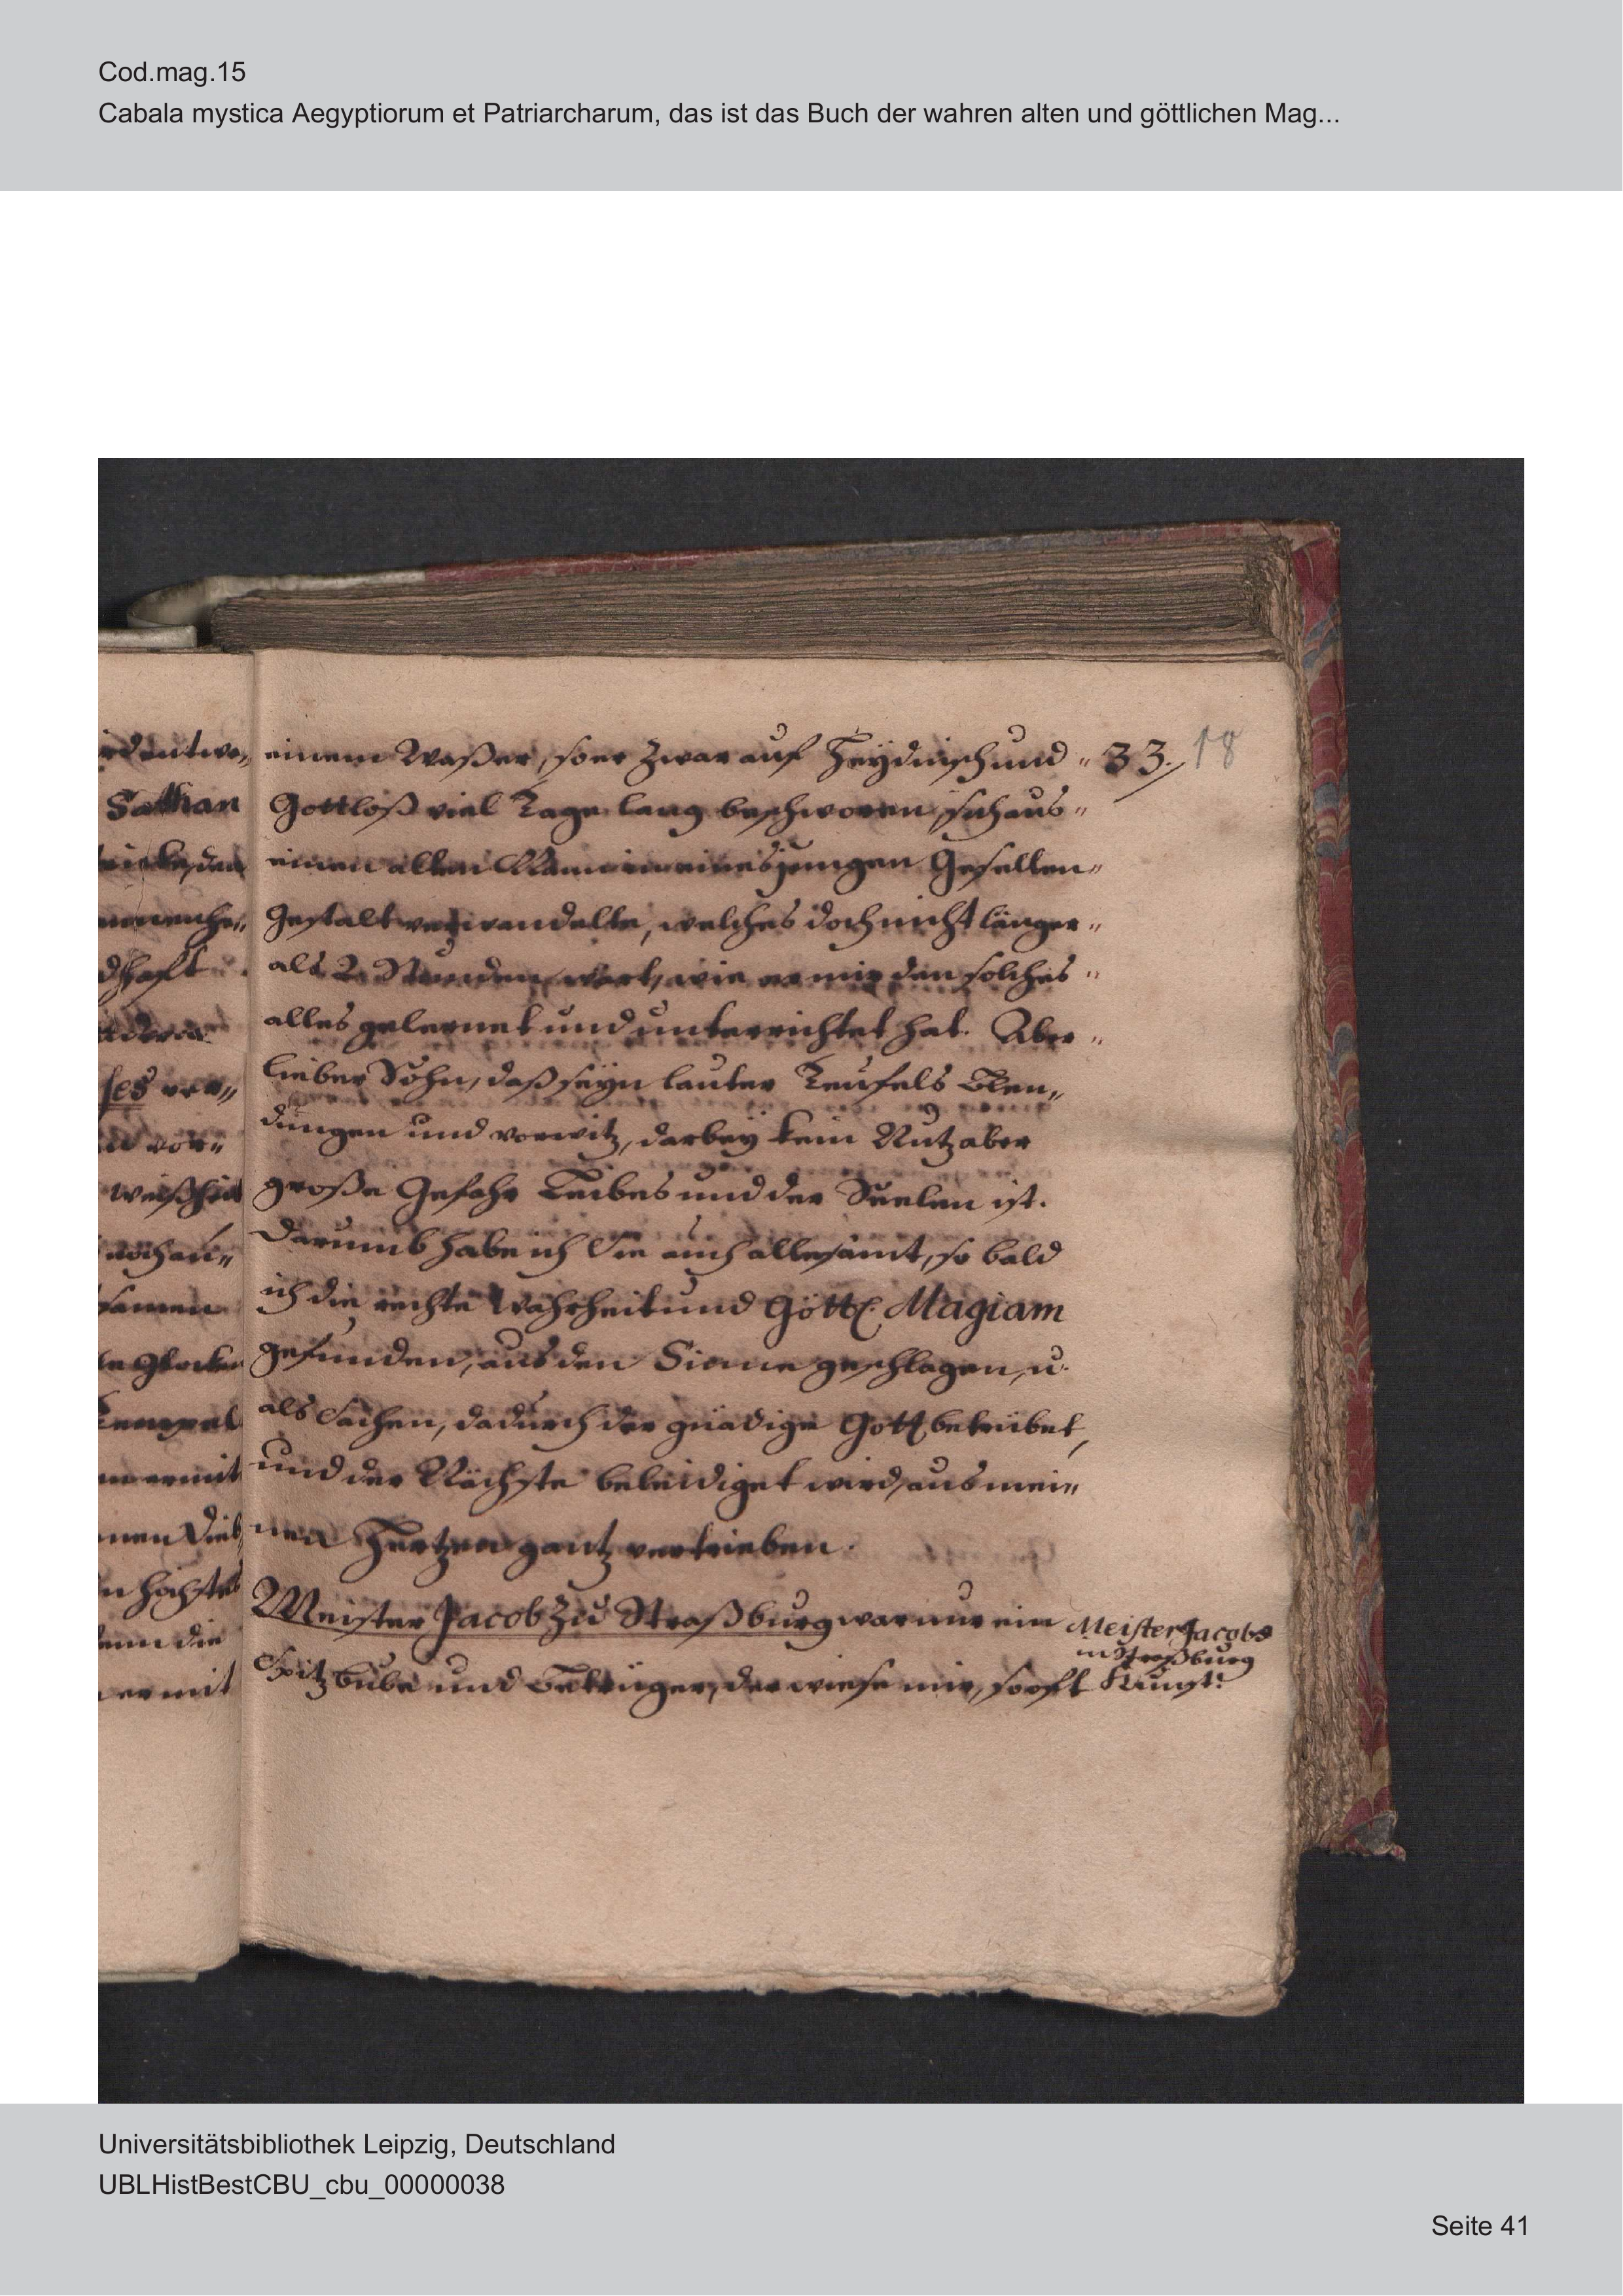 Cod.mag.15
Cabala mystica Aegyptiorum et Patriarcharum, das ist das Buch der wahren alten und göttlichen Mag...
33. 18
einem Waßer, so er zwar auf Heydnisch und "
Gottloß viel Tage lang beschworen, sich aus "
einen alten Mann in eines jungen Gesellen "
Gestalt verwandelte, welches doch nicht länger "
als 2. Stunden wert, wie er mir den solches "
alles gelernet und unterrichtet hat. Aber "
lieber Sohn, daß seyn lauter Teufels Blen„
dungen und vorwitz, darbey kein Nutz aber
große Gefahr Leibes und der Seelen ist.
Darumb habe ich Sie auch allesamt, so bald
ich die rechte Wahrheit und Göttl. Magiam
gefunden, aus den Sinne geschlagen, u.
als Sachen, dadurch der gnädige Gott betrübet,
und der Nächste beleidiget wird, aus mei„
nen Hertzen gantz vertrieben.
Meister Jacob zu Straßburg war nur ein
Spitzbube und Betrüger, der wiese mir, so oft
Meister Jacobs
in Straßburg
Kunst.
Sathan
ses ver„
weißheit
noch an„
samen
Tempel
er mit
höchste
denn die
er mit
Universitätsbibliothek Leipzig, Deutschland
UBLHistBestCBU_cbu_00000038
Seite 41